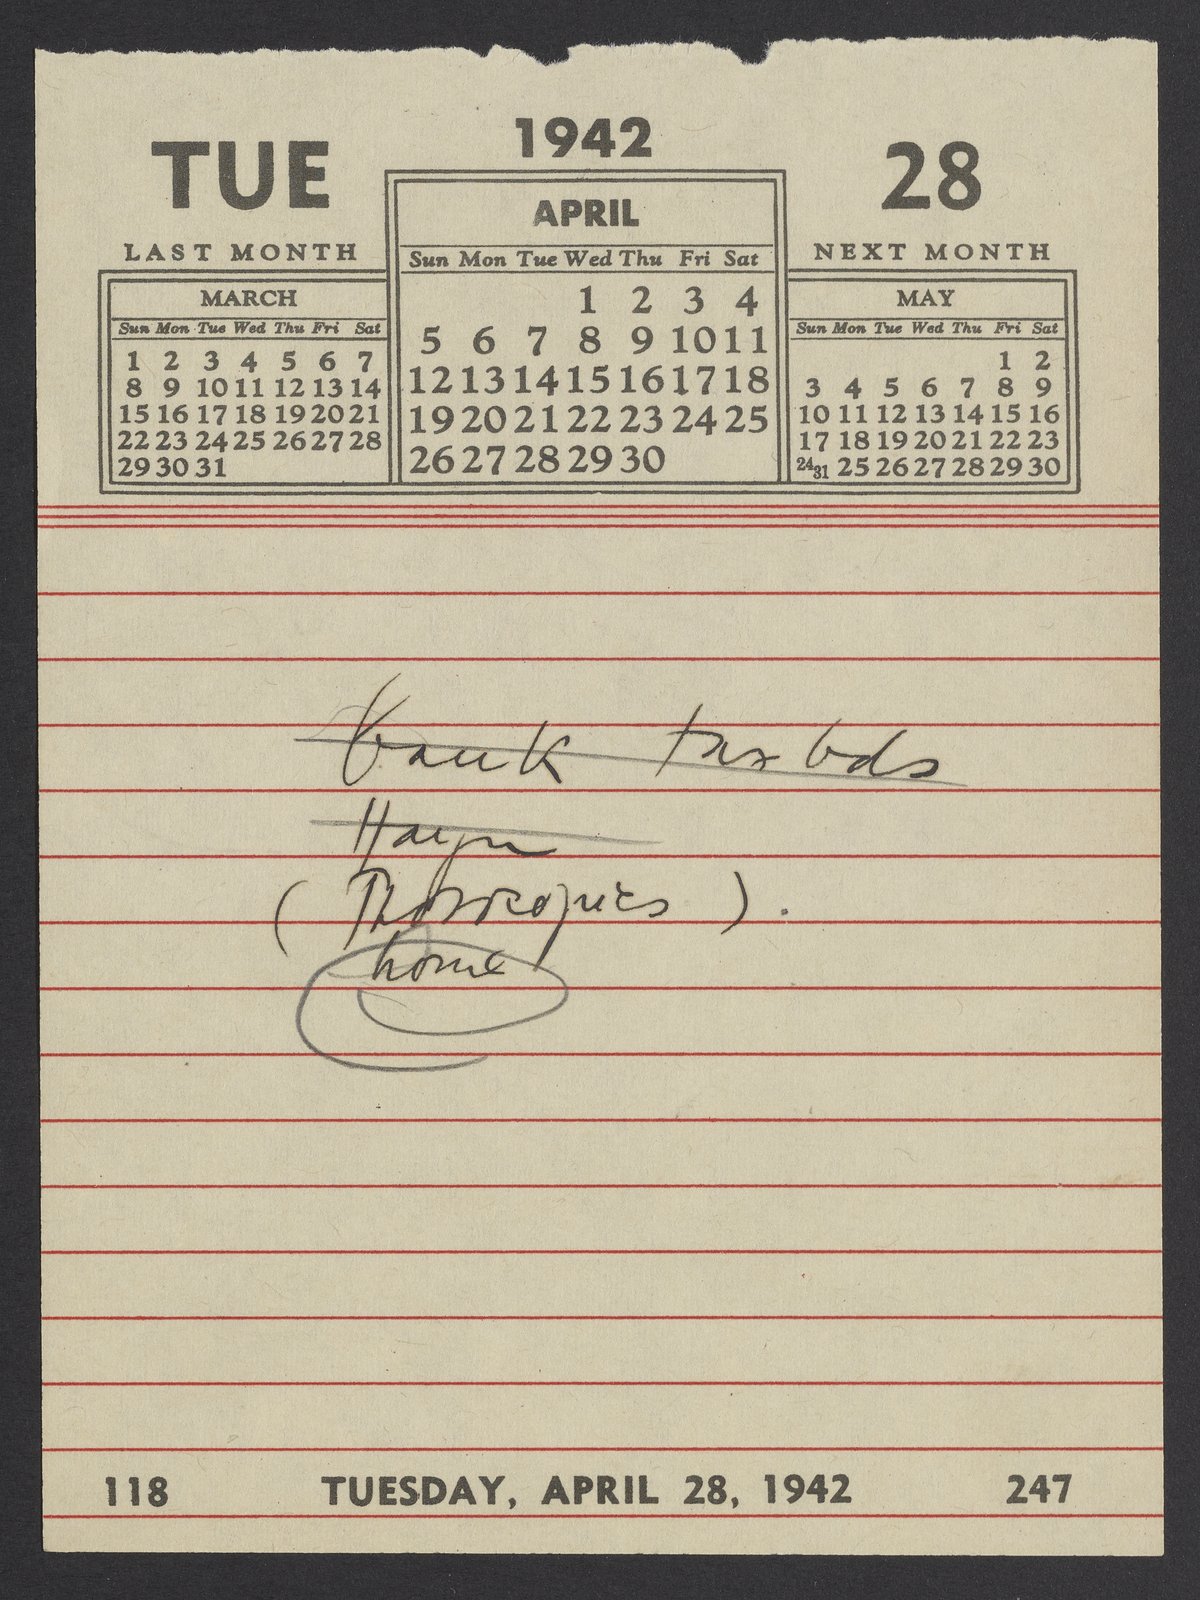 1942
TUE 28
APRIL
LAST MONTH NEXT MONTH
Sun Mon Tue Wed Thu Fri Sat
1 2 3 4
5 6 7 8 9 10 11
12 13 14 15 16 17 18
19 20 21 22 23 24 25
26 27 28 29 30
MARCH
Sun Mon Tue Wed Thu Fri Sat
1 2 3 4 5 6 7
8 9 10 11 12 13 14
15 16 17 18 19 20 21
22 23 24 25 26 27 28
29 30 31
MAY
Sun Mon Tue Wed Thu Fri Sat
1 2
3 4 5 6 7 8 9
10 11 12 13 14 15 16
17 18 19 20 21 22 23
24 31 25 26 27 28 29 30
bank tax bds
( Photocopies ).
home
118 TUESDAY, APRIL 28, 1942 247